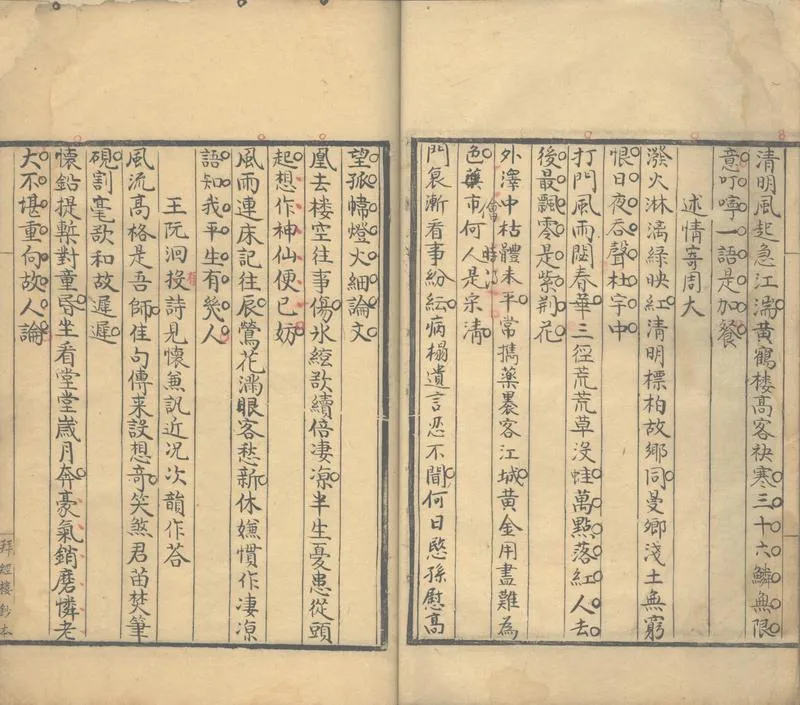 清明風起急江湍黃鶴樓高客袂寒三十六鱗無限
意叮嚀一語是加餐
述情寄周大
潑火淋漓綠映紅清明標柏故鄉同曼卿淺土無窮
恨日夜吞聲杜宇中
打門風雨閟春華三徑荒荒草沒蛙萬點落紅人去
後最飄零是紫荆花
外澤中枯體未平常攜藥裹客江城黃金用盡難為
色藥市何人是宋清
儈
門衰漸看事紛紜病榻遺言忍不聞何日愍孫慰高
望孤幃燈火細論文
凰去樓空往事傷冰絃欲續倍凄凉半生憂患從頭
起想作神仙便已妨
風雨連床記往辰鶯花滿眼客愁新休嫌慣作凄凉
語知我平生有幾人
王阮洄投詩見懷兼訊近况次韻作荅
風流高格是吾師佳句傳来設想奇笑煞君苗焚筆
硯割毫欲和故遲遲
懷鉛提槧對童昏坐看堂堂歲月奔豪氣銷磨憐老
大不堪重向故人論
拜經樓鈔本